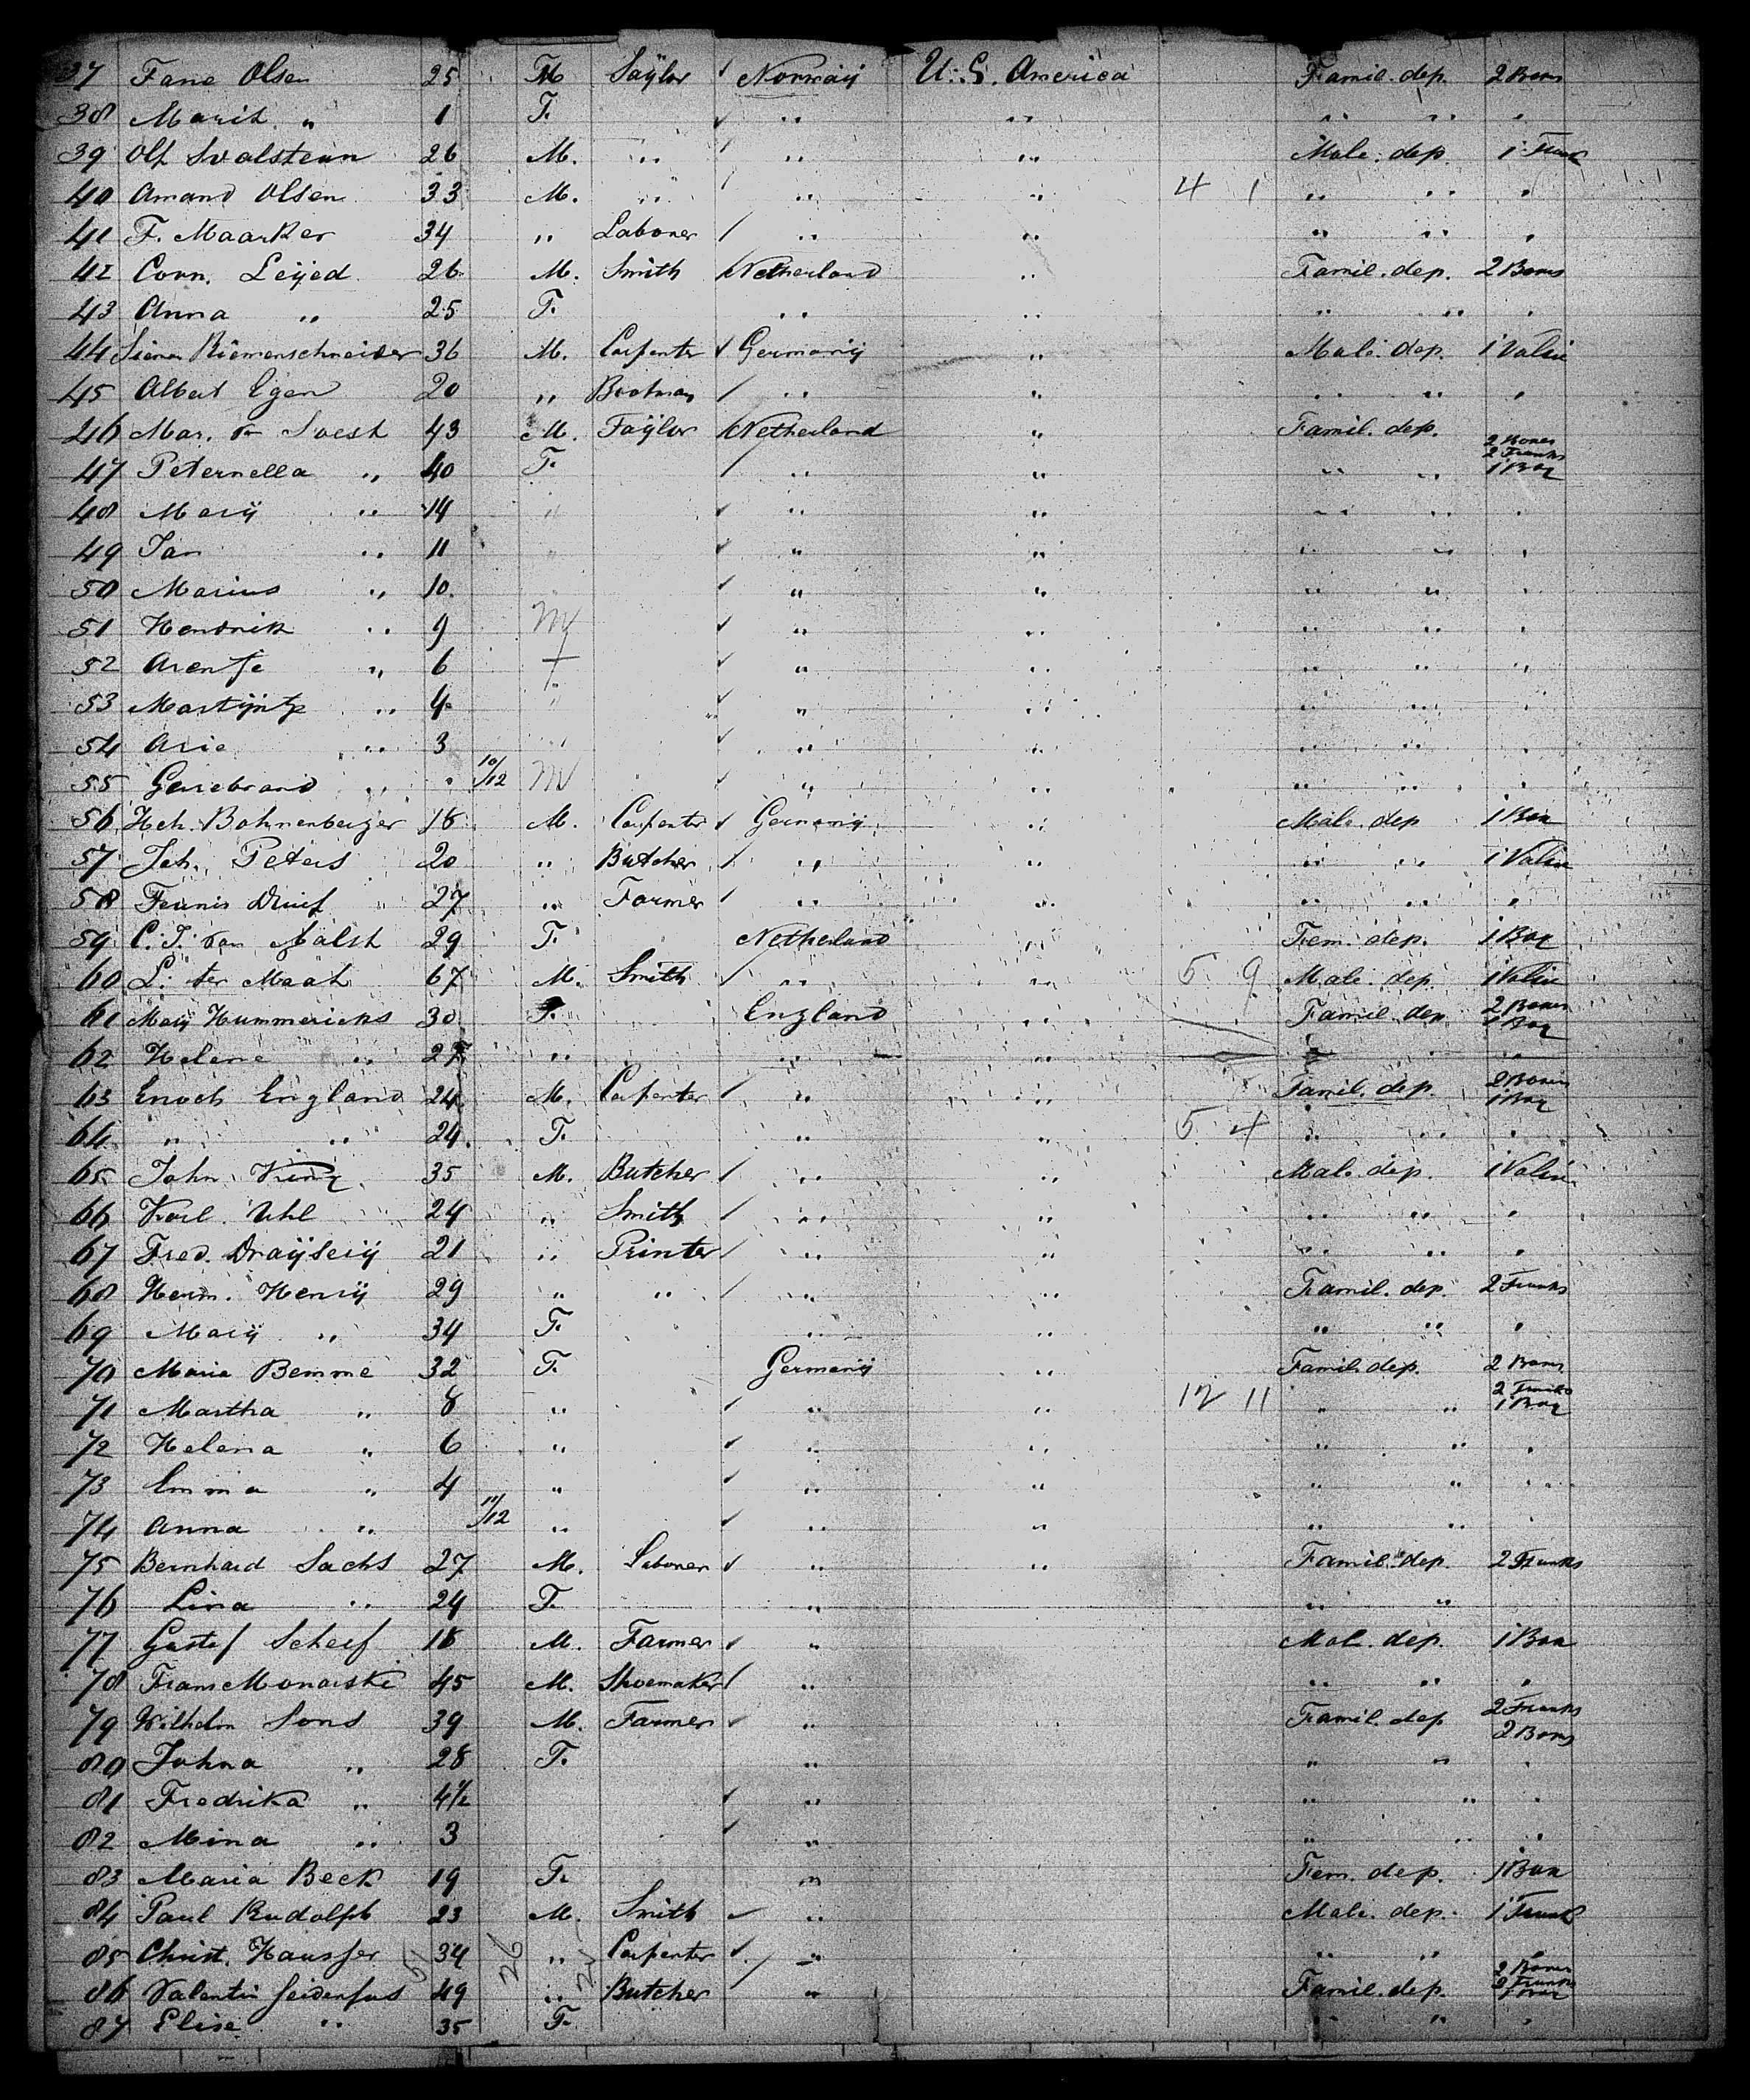 37 Fane Olsen 25 M Saylor Norway U. S. America Famil. dep. 2 Boxes
38 Marit " 1 F. " " " " "
39 Olf Svalsteun 26 M. " " " Male. dep. 1 Trunk
40 Amand Olsen 33 M. " " " 4 1 " " "
41 F. Maarker 34 " Laborer " " " " "
42 Corn. Leyed 26 M. Smith Netherland " Famil. dep. 2 Boxes
43 Anna " 25 F. " " " " "
44 Riemenschneider 36 M. Carpenter Germany " Male. dep. 1 Valise
45 Albert Egen 20 " " " " " "
46 Mar. v. Soest 43 M. Taylor Netherland " Famil. dep. 2 Boxes
47 Peternella " 40 F. " " " " 2 Trunks 1 Bag
48 Mary " 14 " " " " " "
49 Jan " 11 " " " " " "
50 Marius " 10 " " " " "
51 Hendrik " 9 M " " " " "
52 Arentje " 6 f " " " " "
53 Martijntje " 4 " " " " " "
54 Arie " 3 " " " " " "
55 Gerrebrand " " 10/12 M " " " " "
56 Hch. Bohnenberger 18 M. Carpenter Germany " Male. dep 1 Box
57 Joh. Peters 20 " Butcher " " " " 1 Valise
58 Teunis Druif 27 " Farmer " " " " "
59 C. J. van Aalst 29 F. Netherland " Fem. dep. 1 Bag
60 L. ter Maat 67 M. Smith " " 5 9 Male. dep. 1 Valise
61 Mary Hummericks 30 F. England " Famil. dep 2 Boxes 1 Bag
62 Helene " 27 " " " " "
63 Enoch England 24 M. Carpenter " " Famil. dep. 2 Boxes 1 Bag
64 " " 24 F. " " 5 4 " " "
65 John King 35 M. Butcher " " Male. dep. 1 Valise
66 Karl Uhl 24 " Smith " " " " "
67 Fred. Draysery 21 " Printer " " " " "
68 Herm. Henry 29 " " " " Famil. dep. 2 Trunks
69 Mary " 34 F. " " " " "
70 Maria Bemme 32 F. Germany " Famil. dep. 2 Boxes
71 Martha " 8 " " " 12 11 " " 2 Trunks 1 Bag
72 Helena " 6 " " " " " "
73 Emma " 4 " " " " " "
74 Anna " 11/12 " " " " "
75 Bernhard Sachs 27 M. Laborer " " Famil. dep 2 Trunks
76 Lina " 24 F. " " "
77 Gustaf Scherf 18 M. Farmer " Male. dep. 1 Box
78 Frans Monarski 45 M. Shoemaker " " " "
79 Wilhelm Sons 39 M. Farmer " Famil. dep 2 Trunks 2 Boxes
80 Johna " 28 F. " " " "
81 Fredrika " 4½ " " " "
82 Mina " 3 " " " "
83 Maria Beck 19 F. " Fem. dep. 1 Box
84 Paul Rudolph 23 M. Smith " Male. dep. 1 Trunk
85 Christ. Hausser 34 " Carpenter " " " "
86 Valentin Seidenfus 49 " Butcher " Famil. dep. 2 Boxes 2 Trunks
87 Elise " 35 F. " " "